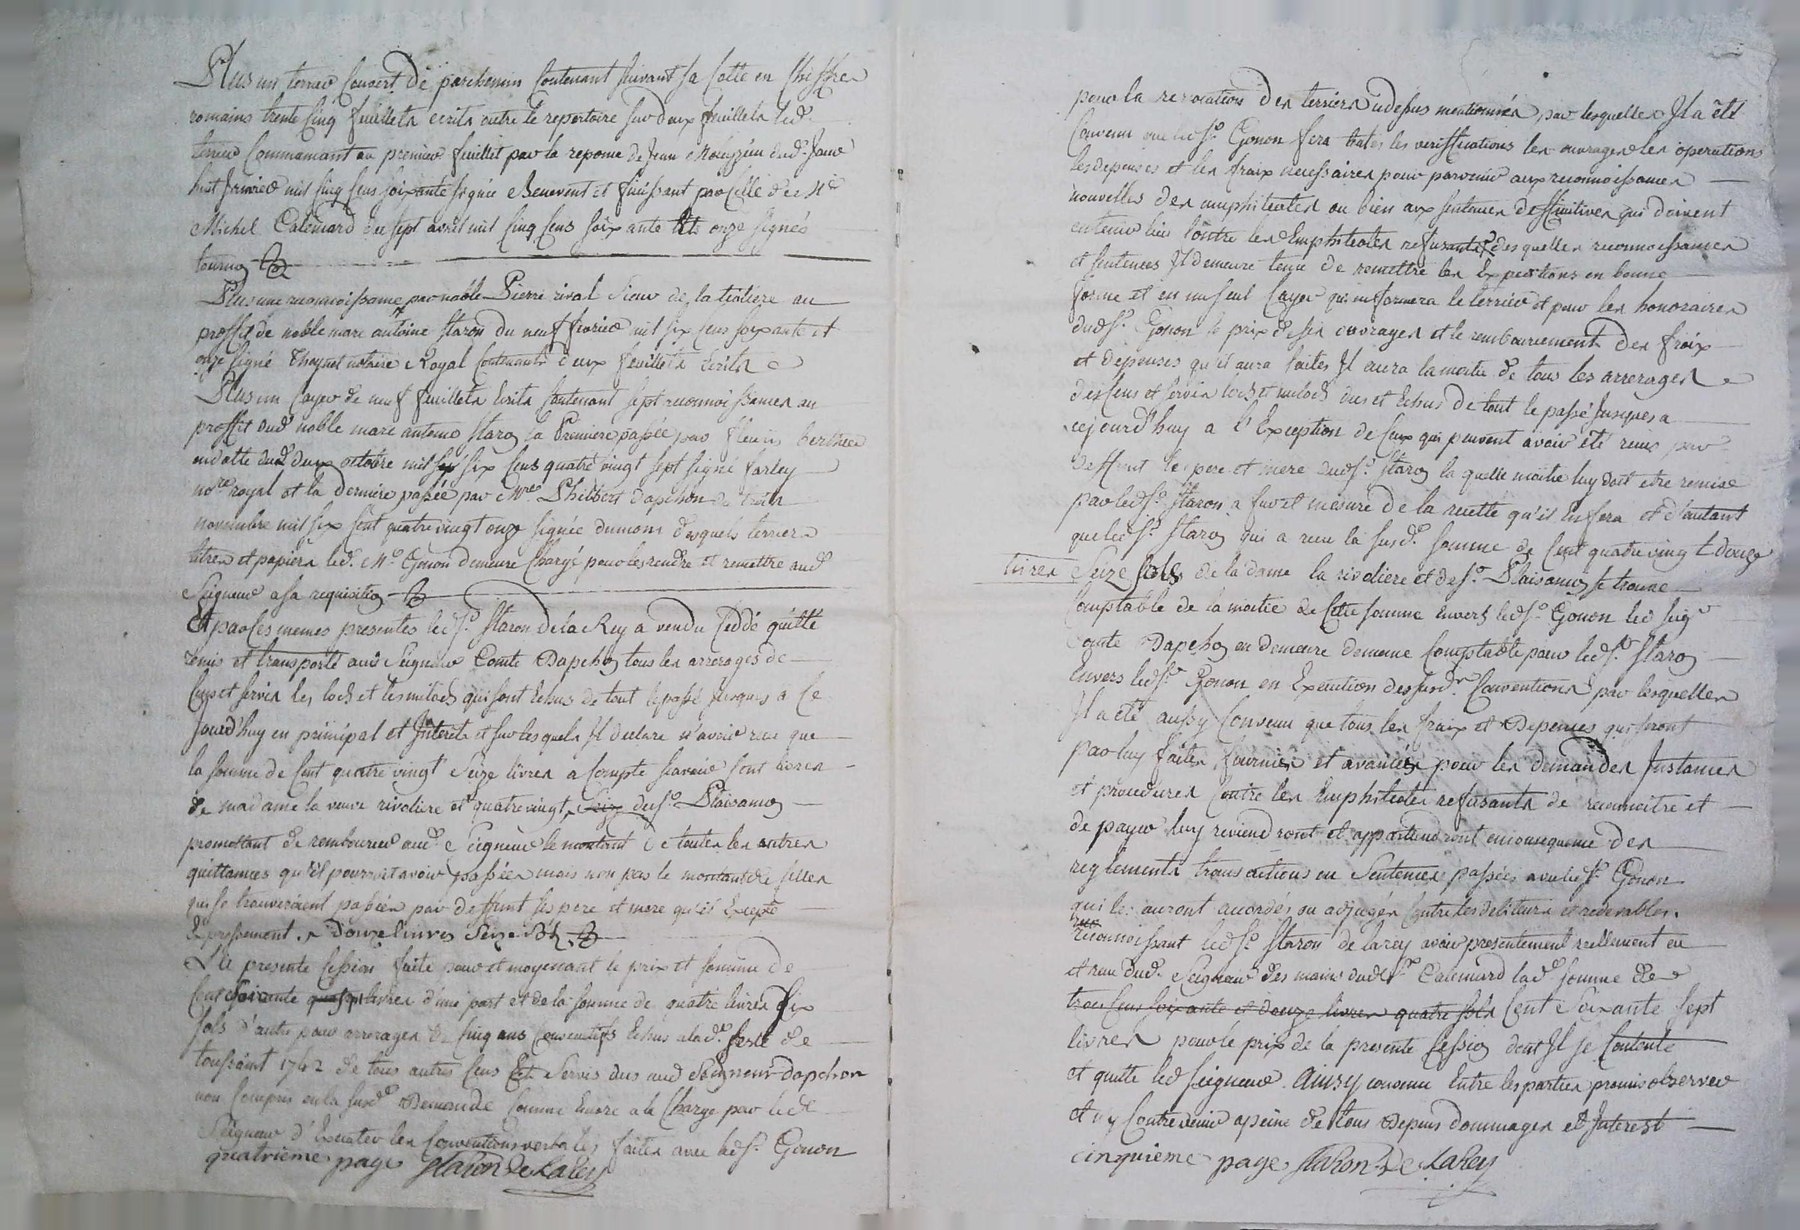 Plus un terrier Couvert de parchemin Contenant Suivant sa Cotte en Chiffres
romains trente Cinq feuillets ecrits outre le repertoire sur deux feuillets led.
terrier Commencant au premier feuillet par la reponse de Jean dud. Jour
huit fevrier mil Cinq Cens soixante signée Benevent et finissant par Celle de Me
Michel Calemard du sept avril mil Cinq Cens soixante et onze signés
tournon
Plus une reconnoissance par noble Pierre rival Sieur de la au
proffit de noble marc antoine Staron du neuf fevrier mil six Cens soixante et
onze signé Thoynet notaire Royal Contenant deux feuillets Ecrits
Plus un Cayer de neuf feuillets Ecrits Contenant sept reconnoissances au
proffit dud. noble marc antoine Staron la Premiere passée par fleuris berthier
en datte du deux octobre mil six Cens quatre vingt sept signé farley
nore royal et la derniere passée par Mre Philibert dapchon de
novembre mil six Cent quatre vingt onze signée dumont desquels terriers
titres et papiers led. Mr. Gonon demeure Chargé pour les rendre et remettre aud.
Seigneur a sa requisition
Et par Ces memes presentes led. Sr. Staron de la Rey a vendu Ceddé quitté
remis et transporté aud. Seigneur Comte Dapchon tous les arrerages de
Cens et servis les lods et les milods qui sont Echus de tout le passé Jusques a Ce
Jourd'huy en principal et Interets et sur lesquels Il declare n'avoir recu que
la somme de Cent quatre vingt Seize livres a Compte scavoir Cent livres
de madame la veuve rivoliere et quatre vingt Seize du Sr. Plaisançon
promettant de rembourser aud. Seigneur le montant de toutes les autres
quittances qu'il pourroit avoir passées mais non pas le montant de Celles
qui se trouveroient passées par deffunt ses pere et mere qu'il Excepte
Expressement. Douze livres Seize sols
La presente Cession faite pour et moyennant le prix et somme de
Cent Soixante livres d'une part et de la somme de quatre livres dix
sols d'autre pour arrerages de Cinq ans Consecutifs Echus a lad. feste de
toussaint 1742 de tous autres Cens Et Servis dus aud Seigneur dapchon
non Compris en la susd. Demande Comme Encore a la Charge par led.
Seigneur d'Executer les Conventions verballes faites avec led. Sr. Gonon
quatrieme page Staron De Larey
pour la renovation des terriers cy dessus mentionnés par lesquelles Il a été
Convenu que led. Sr. Gonon fera toutes les verifications les ouvrages les operations
les depenses et les fraix necessaires pour parvenir aux reconnoissances
nouvelles des emphiteotes ou bien aux sentences deffinitives qui doivent
en tenir lieu Contre les Emphiteotes refusants desquelles reconnoissances
et sentences Il demeure tenu de remettre les Expeditions en bonne
forme et en un seul Cayer qui en formera le terrier et pour les honoraires
dud. Sr. Gonon le prix de ses ouvrages et le remboursement des fraix
et depenses qu'il aura faites Il aura la moitié de tous les arrerages
des Cens et servis lods et milods dus et Echus de tout le passé Jusques a
cejourd'huy a l'Exception de Ceux qui peuvent avoir été recus par
deffunt les pere et mere dud. Sr. Staron la quelle moitié luy doit etre remise
par led. Sr. Staron a fur et mesure de la recette qu'il en fera et d'autant
que led. Sr. Staron qui a recu la susd. somme de Cent quatre vingt douze
livres Seize sols de la dame la rivoliere et de Sr. Plaisançon se trouve
Comptable de la moitié de Cette somme envers led. Sr. Gonon led Seigr
Comte Dapchon en demeure demeure Comptable pour led. Sr. Staron
Envers led. Sr. Gonon en Execution des susd. Conventions par lesquelles
Il a été aussy Convenu que tous les fraix et Depenses qui seront
par luy faites fournies et avancées pour les demandes Instances
et procedures Contre les Emphiteotes refusants de reconnoitre et
de payer luy reviendront et appartiendront en consequence des
reglements transactions ou Sentences passées avec led. Sr. Gonon
qui les auront accordés ou adjugés Contre les debiteurs et redevables.
reconnoissant led. Sr. Staron de la rey avoir presentement reellement eu
et recu dud. Seigneur des mains dud. Sr. Calemard lad. somme de
trois Cens soixante et douze livres quatre sols Cent Soixante Sept
livres pour le prix de la presente Cession dont Il se Contente
et quitte led Seigneur. Ainsy convenu Entre les parties promis observer
et n'y Contrevenir a peine de tous Depens dommages et Interest
cinquieme page Staron De LaRey